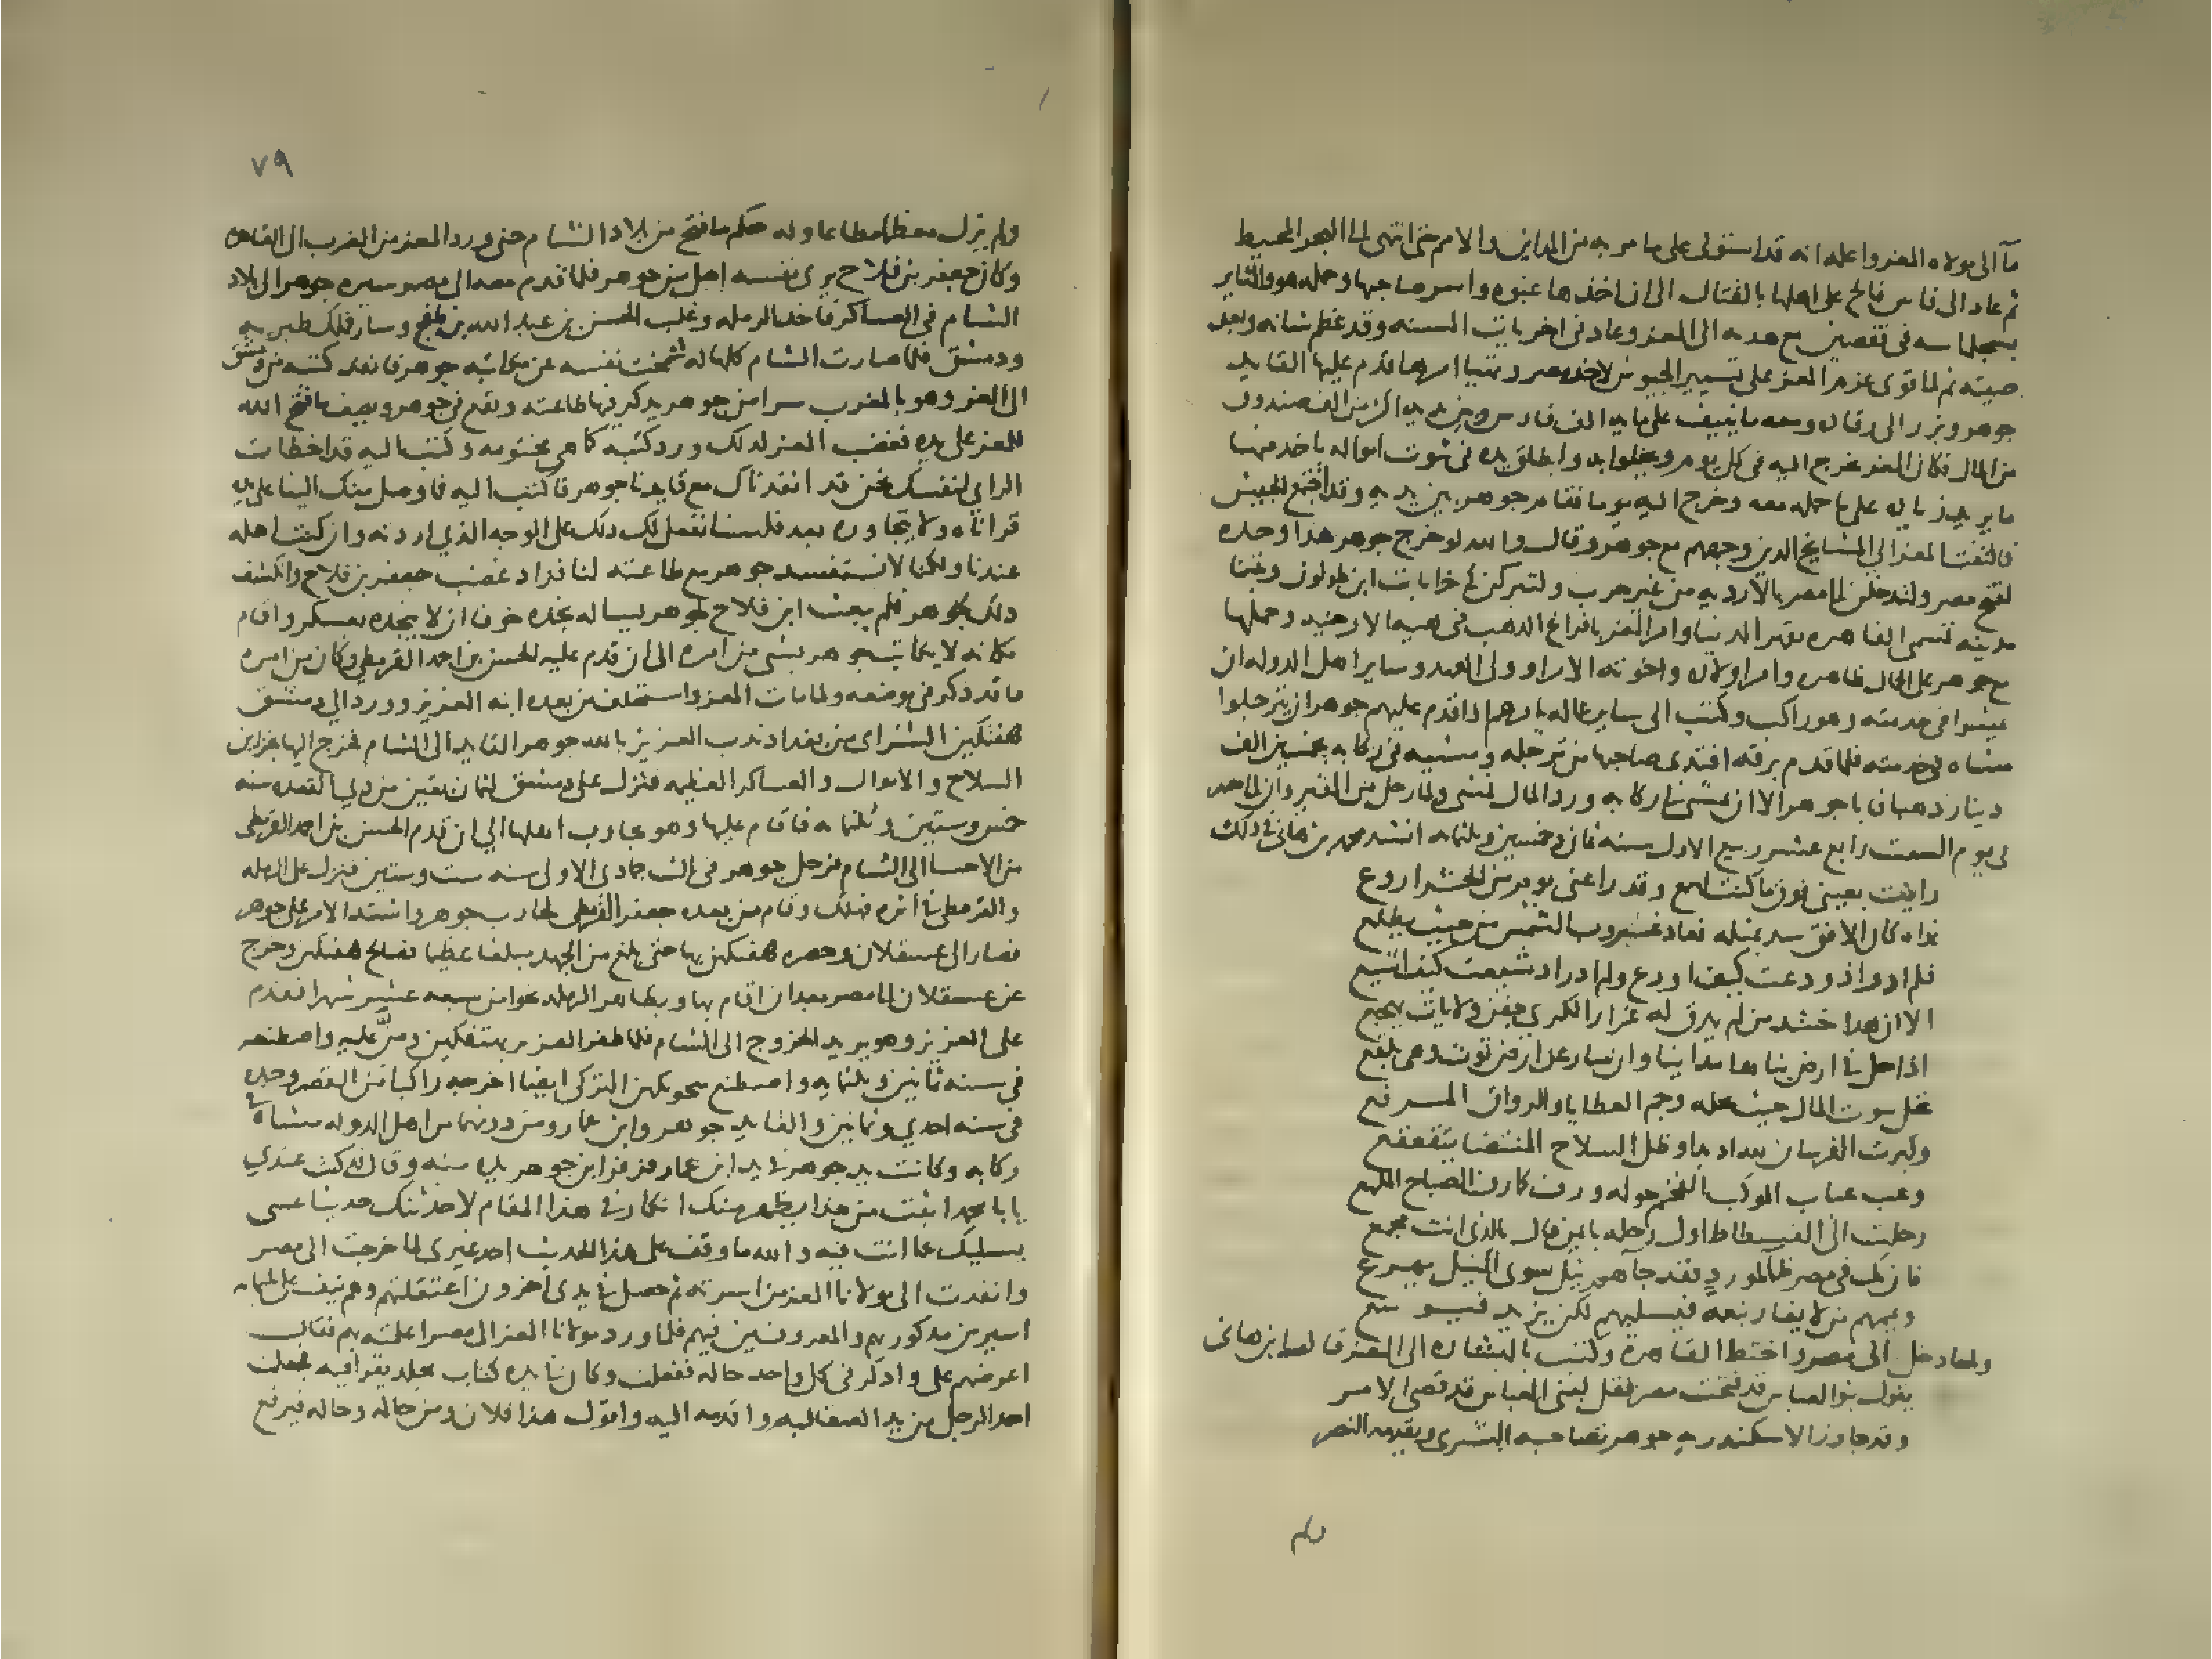 ما الى مولاه المعز واعلمه انه قد استولى على ما مر به من المداين والامم حتى انتهى الى البحر المحيط
ثم عاد الى فاس فالح على اهلها بالقتال الى ان اخذها عنوه واسر صاحبها وحمله هو والثاير
بسجلماسه في قفصين مع هديه الى المعز وعاد في اخريات السنه وقد عظم شانه وبعد
صيته ثم لما قوى عزم المعز على تسيير الجيوش لاخذ مصر وتهيا امرها قدم عليها القايد
جوهر وبرز الى رقاده ومعه ما ينيف على مايه الف فارس وبين يديه اكثر من الف صندوق
من المال فكان المعز يخرج اليه في كل يوم ويخلوا به واطلق يده في بيوت امواله ياخذ منها
ما يريد زياده على ما حمله معه وخرج اليه يوما فقام جوهر بين يديه وقد اجتمع الجيش
فالتفت المعز الي المشايخ الذين وجههم مع جوهر وقال والله لو خرج جوهر هذا وحده
لفتح مصر ولتدخلن الى مصر بالارديه من غير حرب ولتنزلن في خرابات ابن طولون وتبنا
مدينه تسمى القاهره تقهر الدنيا وامر المعز بافراغ الذهب في هييه الارحيه وحملها
مع جوهر على الجمال ظاهره وامر اولاده واخوته الامرا وولى العهد وساير اهل الدوله ان
يمشوا في خدمته وهو راكب وكتب الى ساير عماله يامرهم اذا قدم عليهم جوهر ان يترجلوا
مشاه في خدمته فلما قدم برقه افتدى صاحبها من ترجله ومشيه في ركابه بخمسين الف
دينار ذهبا فابا جوهر الا ان يمشي في ركابه ورد المال فمشى ولما رحل من القيروان الى مصر
في يوم السبت رابع عشر ربيع الاول سنه ثمان وخمسين وثلثمايه انشد محمد بن هاني في ذلك
رايت بعيني فوق ما كنت اسمع وقد راعني يوم من الحشر اروع
غداه كان الافق سد بمثله فعاد غروب الشمس من حيث تطلع
فلم ادر اذ ودعت كيف اودع ولم ادر اذ شيعت كيف اشيع
الا ان هذا حشد من لم يذق له غرار الكري جفن ولا بات يهجع
اذا حل في ارض بناها مداينا وان سار عن ارض ثوت وهي بلقع
تحل بيوت المال حيث محله وجم العطايا والرواق المرفع
وكبرت الفرسان لله اذ بدا وظل السلاح المنتضا يتقعقع
وعب عباب الموكب الفخم حوله ورق كما رق الصباح الملمع
رحلت الى الفسطاط اول رحله بايمن فال بالذي انت مجمع
فان يك في مصر ظمآ لمورد فقد جآهم نيل سوى النيل يهرع
ويممهم من لا يغار بنعمه فيسلبهم لكن يزيد فيوسع
ولما دخل الى مصر واختط القاهرة وكتب بالبشاره الى المعز قال ابن هانى
يقول بنو العباس قد فتحت مصر فقل لبنى العباس قد قضى الامر
وقد جاوز الاسكندريه جوهر تصاحبه البشرى ويقدمه النصر
ولم
٧٩
ولم يزل معظما مطاعا وله حكم ما فتح من بلاد الشام حتى ورد المعز من المغرب الى القاهره
وكان جعفر بن فلاح يرى نفسه اجل من جوهر فلما قدم معه الى مصر سيره جوهر الى بلاد
الشام في العساكر فاخذ الرمله وغلب الحسن بن عبد الله بن طغج وسار فملك طبريه
ودمشق فلما صارت الشام كلها له شمخت نفسه عن مكاتبه جوهر فانفذ كتبه من دمشق
الى المعز وهو بالمغرب سرا من جوهر يذكر فيها طاعته ويقع في جوهر ويصف ما فتح الله
للمعز على يده فغضب المعز لذلك ورد كتبه كما هي مختومه وكتب اليه قد اخطات
الراي لنفسك نحن قد انفذناك مع قايدنا جوهر فاكتب اليه فما وصل منك الينا على يده
قراناه ولا تتجاوزه بعد فلسنا نفعل لك ذلك على الوجه الذي اردته وان كنت اهله
عندنا ولكنا لا نستفسد جوهر مع طاعته لنا فزاد غضب جعفر بن فلاح وانكشف
ذلك لجوهر فلم يبعث ابن فلاح لجوهر يساله نجده خوفا ان لا ينجده بعسكر واقام
مكانه لا يكاتب جوهر بشي من امره الى ان قدم عليه الحسن بن احمد القرمطي وكان من امره
ما قد ذكر في موضعه ولما مات المعز واستخلف من بعده ابنه العزيز وورد الي دمشق
هفتكين الشرابى من بغداد ندب العزيز بالله جوهر القايد الى الشام فخرج اليها بخزاين
السلاح والاموال والعساكر العظيمه فنزل على دمشق لثمان بقين من ذي القعده سنه
خمس وستين وثلثمايه فاقام عليها وهو يحارب اهلها الي ان قدم الحسن بن احمد القرمطي
من الاحسا الى الشام فرحل جوهر في ثالث جمادى الاولى سنه ست وستين فنزل على الرمله
والقرمطي في اثره فهلك وقام من بعده جعفر القرمطي فحارب جوهر واشتد الامر على جوهر
فصار الى عسقلان وحصره هفتكين بها حتى بلغ من الجهد مبلغا عظيما فصالح هفتكين وخرج
عن عسقلان الى مصر بعد ان اقام بها وبظاهر الرمله نحوا من سبعه عشر شهرا فقدم
على العزيز وهو يريد الخروج الى الشام فلما ظفر العزيز بهتفكين ومن عليه واصطنعه
في سنه ثمانين وثلثمايه واصطنع منجوتكين التركي ايضا اخرجه راكبا من القصر وحده
في سنه احدي وثمانين والقايد جوهر وابن عمار ومن دونهما من اهل الدوله مشاة في
ركابه وكانت يد جوهر في يد ابن عمار فزفر ابن جوهر يده منه وقال قد كنت عندي
يا با محمد اثبت من هذا يظهر منك انكار في هذا المقام لاحدثنك حديثا عسى
يسليك عما انت فيه والله ما وقف على هذا الحديث احد غيرى لما خرجت الى مصر
وانفذت الى مولانا المعز من اسرته ثم حصل في يدى اخرون اعتقلتهم وهم نيف على ثلثمايه
اسير من مذكوريهم والمعروفين فيهم فلما ورد مولانا المعز الى مصر اعلمته بهم فقال
اعرضهم على واذكر في كل واحد حاله ففعلت وكان في يده كتاب مجلد يقرا فيه فجعلت
اخذ الرجل من يد الصقالبه واقدمه اليه واقول هذا فلان ومن حاله وحاله فيرفع